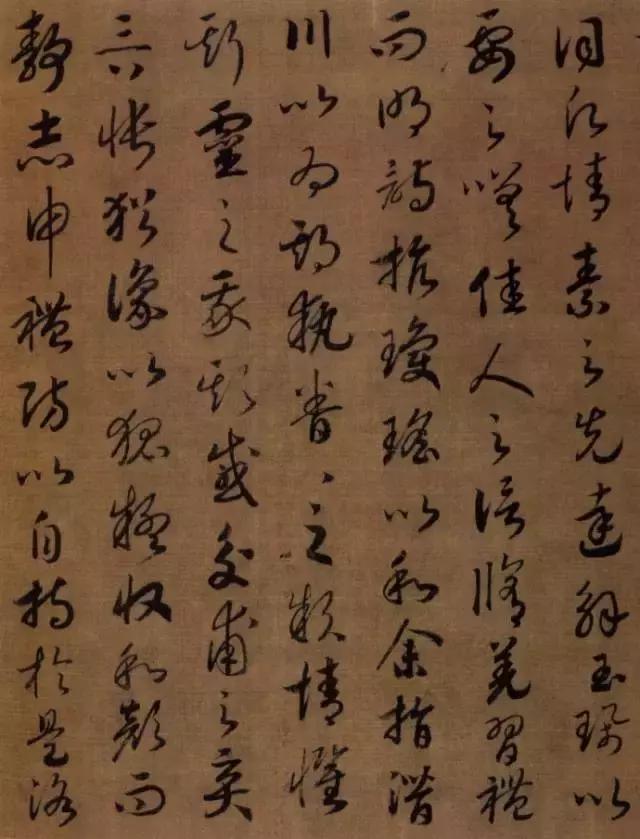 詞願情素之先達解玉珮以
要之嗟佳人之信脩羌習禮
而明詩抗瓊瑤以和余指潛
川以為期執眷〻之款情懼
斯靈之我欺感交甫之棄
言悵猶豫以狐疑收和顏而
靜志申禮防以自持於是洛